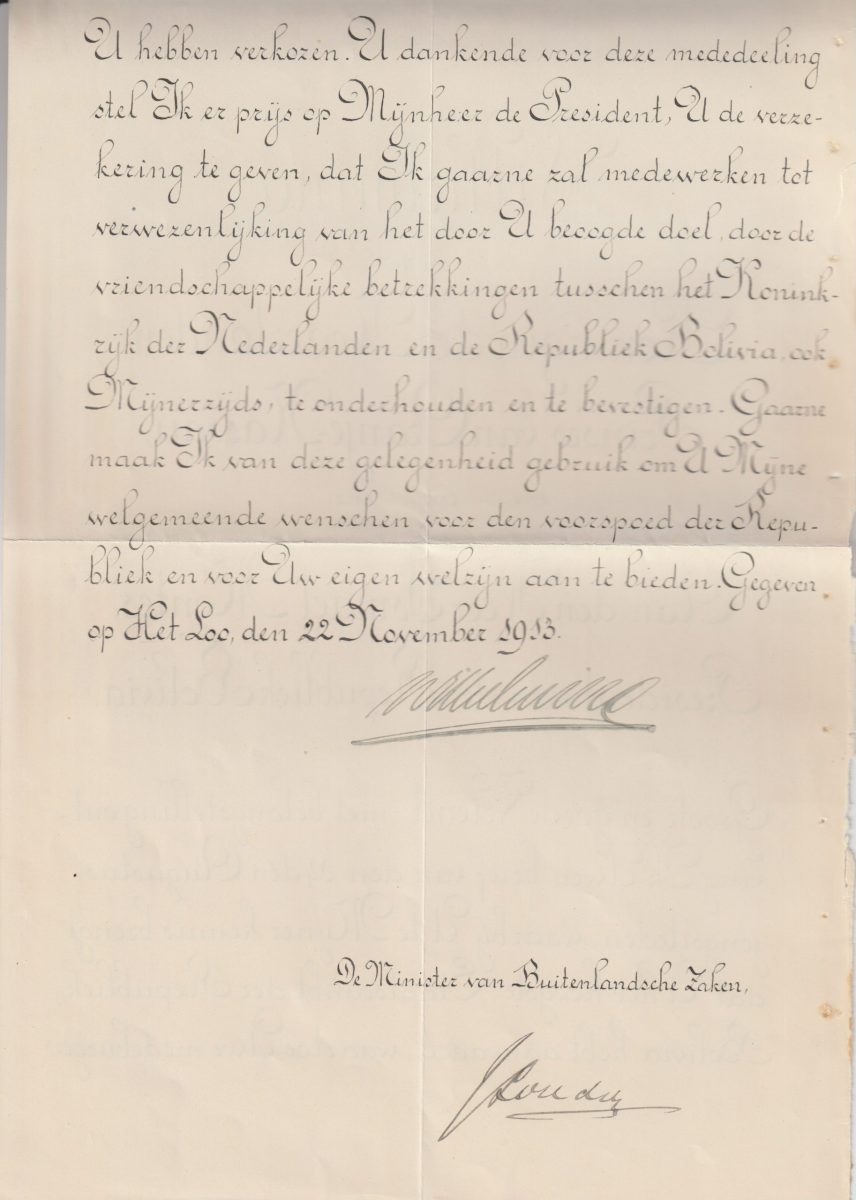 U hebben verkozen. U dankende voor deze mededeeling
stel Ik er prijs op Mijnheer de President, U de verze-
kering te geven, dat Ik gaarne zal medewerken tot
verwezenlijking van het door U beoogde doel, door de
vriendschappelijke betrekkingen tusschen het Konink-
rijk der Nederlanden en de Republiek Bolivia, ook
Mijnerzijds, te onderhouden en te bevestigen. Gaarne
maak Ik van deze gelegenheid gebruik om U Mijne
welgemeende wenschen voor den voorspoed der Repu-
bliek en voor Uw eigen welzijn aan te bieden. Gegeven
op Het Loo, den 22 November 1913.
Wilhelmina
De Minister van Buitenlandsche Zaken,
J Loudon